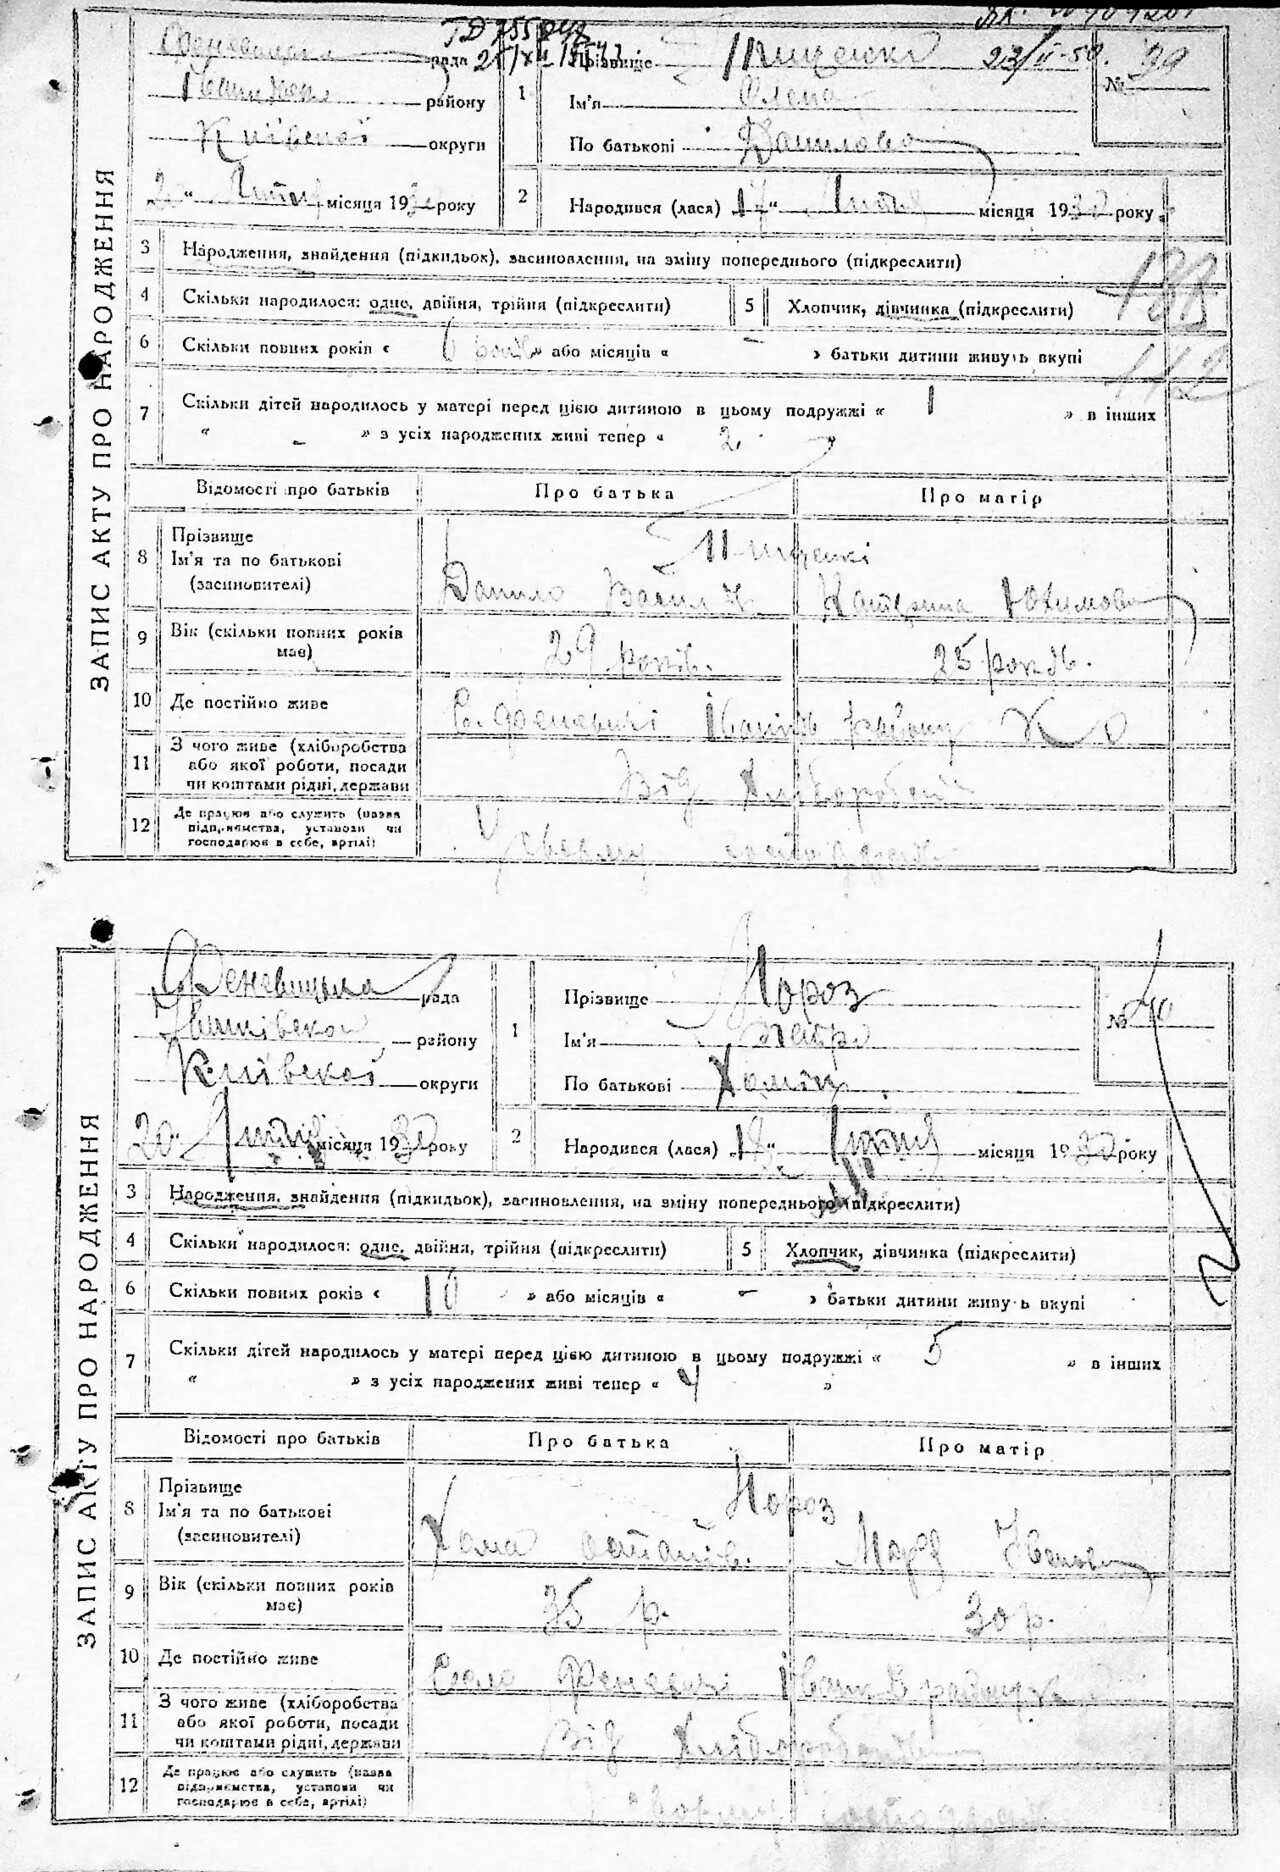 ЗАПИС АКТУ ПРО НАРОДЖЕННЯ
ТД 755848
25/XII 1947
23/II-50.
рада
району
Київської округи
2 " Лютого місяця 1930 року
№ 39
1 Прізвище Пищенко
Ім'я Олена
По батькові Данилова
2 Народився (лася) 17 " Лютия місяця 1930 року
3 Народження, знайдення (підкидьок), засиновлення, на зміну попереднього (підкреслити)
4 Скільки народилося: одне, двійня, трійня (підкреслити)
5 Хлопчик, дівчинка (підкреслити)
112
6 Скільки повних років « 6 років » або місяців « – » батьки дитини живуть вкупі
7 Скільки дітей народилось у матері перед цією дитиною в цьому подружжі « 1 » в інших
« – » з усіх народжених живі тепер « 2 »
Відомості про батьків Про батька Про матір
8 Прізвище
Ім'я та по батькові
(засиновителі)
Пищенкі
Данило Васил Катерина Юхимова
9 Вік (скільки повних років має) 29 років. 25 років.
10 Де постійно живе С. Феневичі Іванків району К О
11 З чого живе (хліборобства або якої роботи, посади чи коштами рідні, держави
Від Хліборобства
12 Де працює або служить (назва підприємства, установи чи господарює в себе, артілі)
У своєму господарстві
ЗАПИС АКТУ ПРО НАРОДЖЕННЯ
Феневицька рада
Іванківської району
Київської округи
20 " Лютия місяця 1930 року
№ 40
1 Прізвище Мороз
Ім'я Петро
По батькові Хомич
2 Народився (лася) 19 " Лютия місяця 1930 року
3 Народження, знайдення (підкидьок), засиновлення, на зміну попереднього (підкреслити)
4 Скільки народилося: одне, двійня, трійня (підкреслити)
5 Хлопчик, дівчинка (підкреслити)
6 Скільки повних років « 10 » або місяців « – » батьки дитини живуть вкупі
7 Скільки дітей народилось у матері перед цією дитиною в цьому подружжі « 5 » в інших
« » з усіх народжених живі тепер « 4 »
Відомості про батьків Про батька Про матір
8 Прізвище
Ім'я та по батькові
(засиновителі)
Мороз
Хома Остапів. Марія Іванова
9 Вік (скільки повних років має) 35 р. 30 р.
10 Де постійно живе Село Феневичі Іванків району
11 З чого живе (хліборобства або якої роботи, посади чи коштами рідні, держави
Від Хліборобства
12 Де працює або служить (назва підприємства, установи чи господарює в себе, артілі)